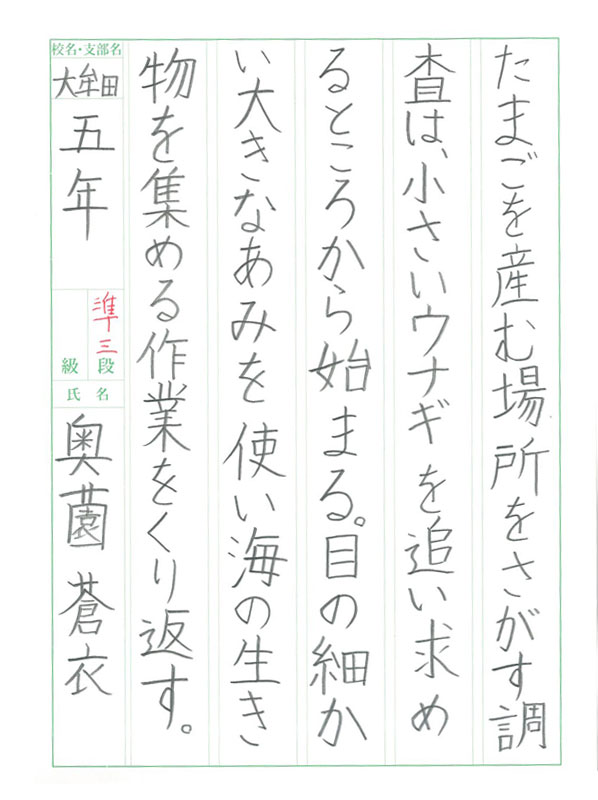 たまごを産む場所をさがす調
査は、小さいウナギを追い求め
るところから始まる。目の細か
い大きなあみを使い海の生き
物を集める作業をくり返す。
校名・支部名
大牟田
五年
準三
段
級
氏名
奥薗蒼衣